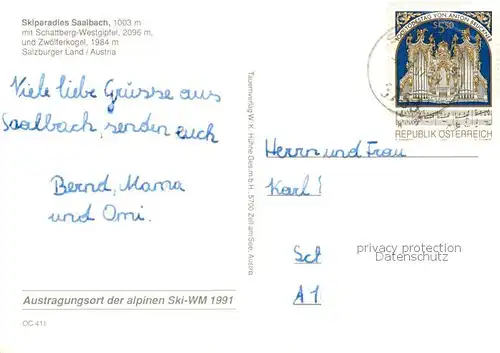 Skiparadies Saalbach, 1003 m
mit Schattberg-Westgipfel, 2096 m,
und Zwölferkogel, 1984 m
Salzburger Land / Austria
Viele liebe Grüsse aus
Saalbach, senden euch
Bernd, Mama
und Omi.
Austragungsort der alpinen Ski-WM 1991
OC 411
Tauernverlag W. K. Hühne Ges.m.b.H. 5700 Zell am See, Austria
TODESTAG VON ANTON
S 5.50
REPUBLIK ÖSTERREICH
Herrn und Frau
Karl !
Sct
A1
privacy protection
Datenschutz